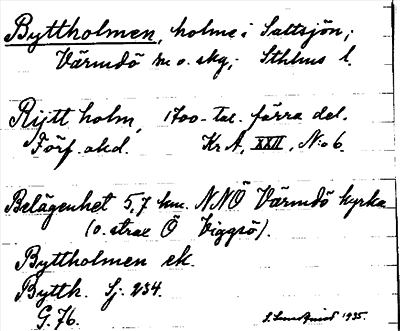 Byttholmen, holme i Saltsjön;
Värmdö sn o. skg; Sthlms l.
Rytt holm, 1700-tal. förra del.
Förf. okd. Kr A, XXII, N:o 6.
Belägenhet 5,7 km. NNÖ Värmdö kyrka
(o. strax Ö Viggsö).
Byttholmen ek.
Byttk. Sj. 234.
G. 76. 1935.